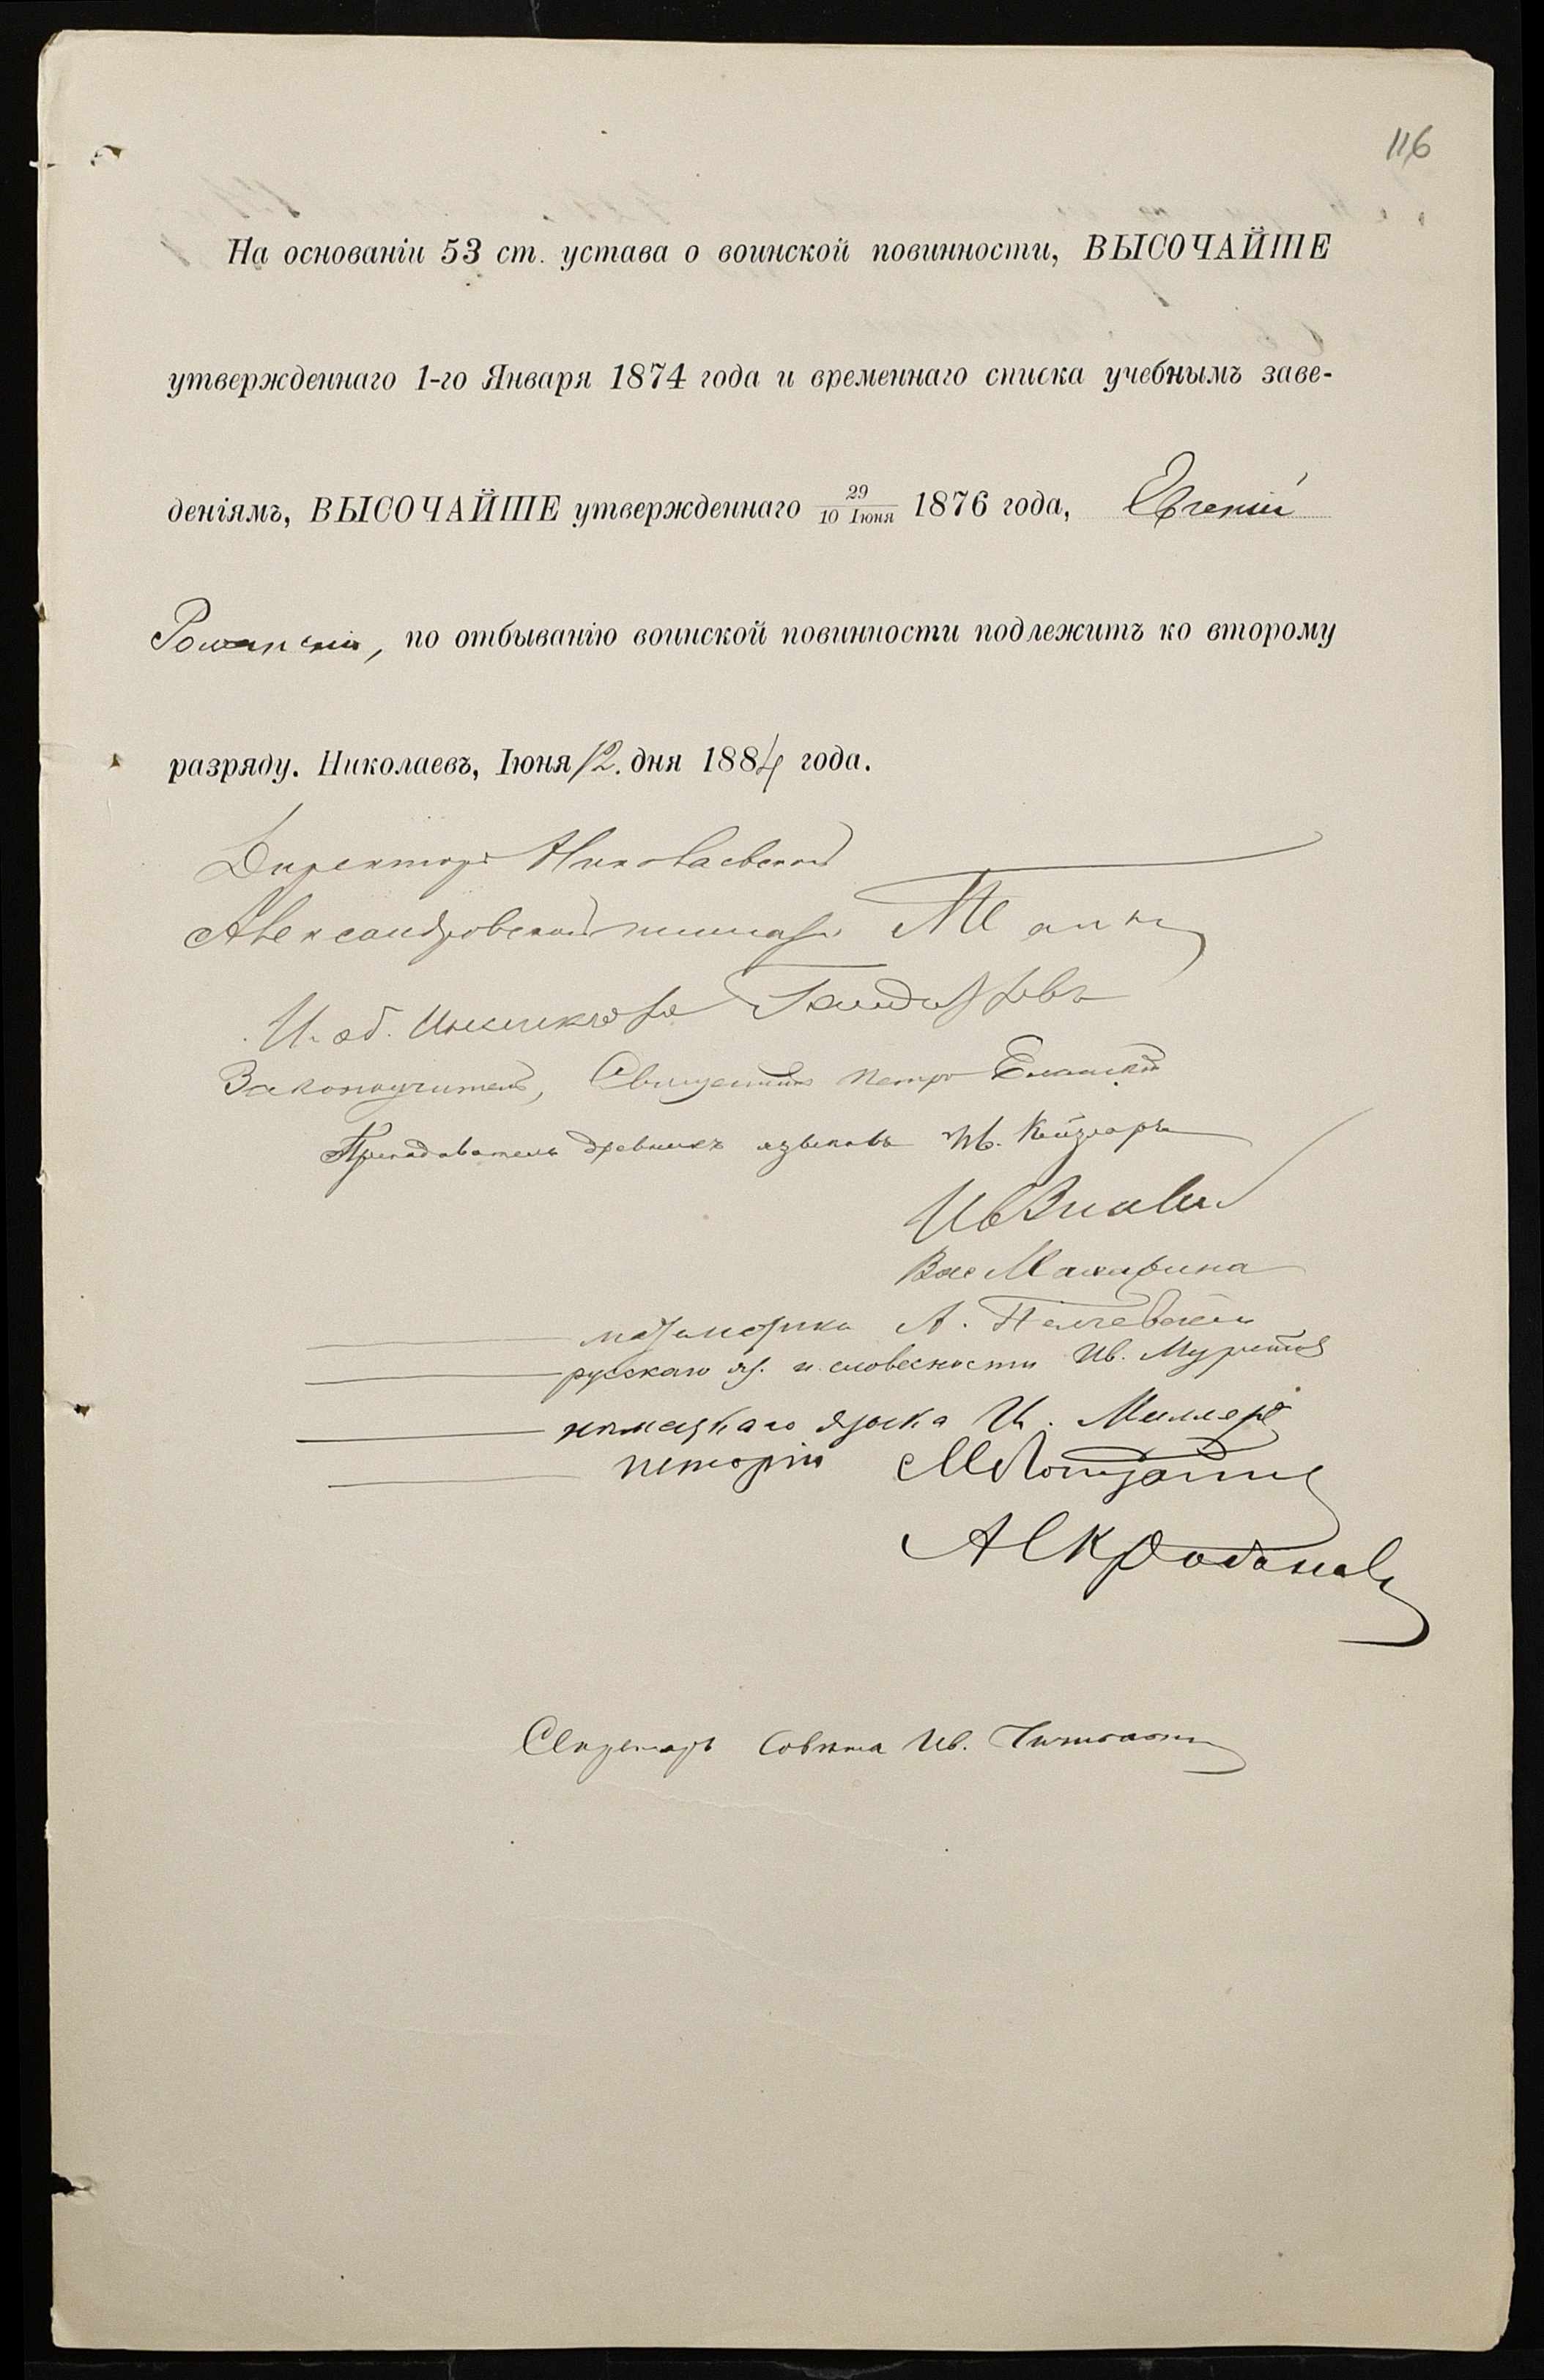 116
На основаніи 53 ст. устава о воинской повинности, ВЫСОЧАЙШЕ
утвержденнаго 1-го Января 1874 года и временнаго списка учебнымъ заве-
деніямъ, ВЫСОЧАЙШЕ утвержденнаго 29/10 Іюня 1876 года, Евгеній
Романскій, по отбыванію воинской повинности подлежитъ ко второму
разряду. Николаевъ, Іюня 12. дня 1884 года.
Директоръ Николаевской
Александровской гимназіи
И. об. Инспектора
Законоучитель, Священникъ Петръ Еланскій
Преподаватель древнихъ языковъ Ив.
Вас.
математики А.
русскаго яз. и словесности Ив. Муретовъ
нѣмецкаго языка И. Миллеръ
исторіи
Секретарь Совѣта Ив.